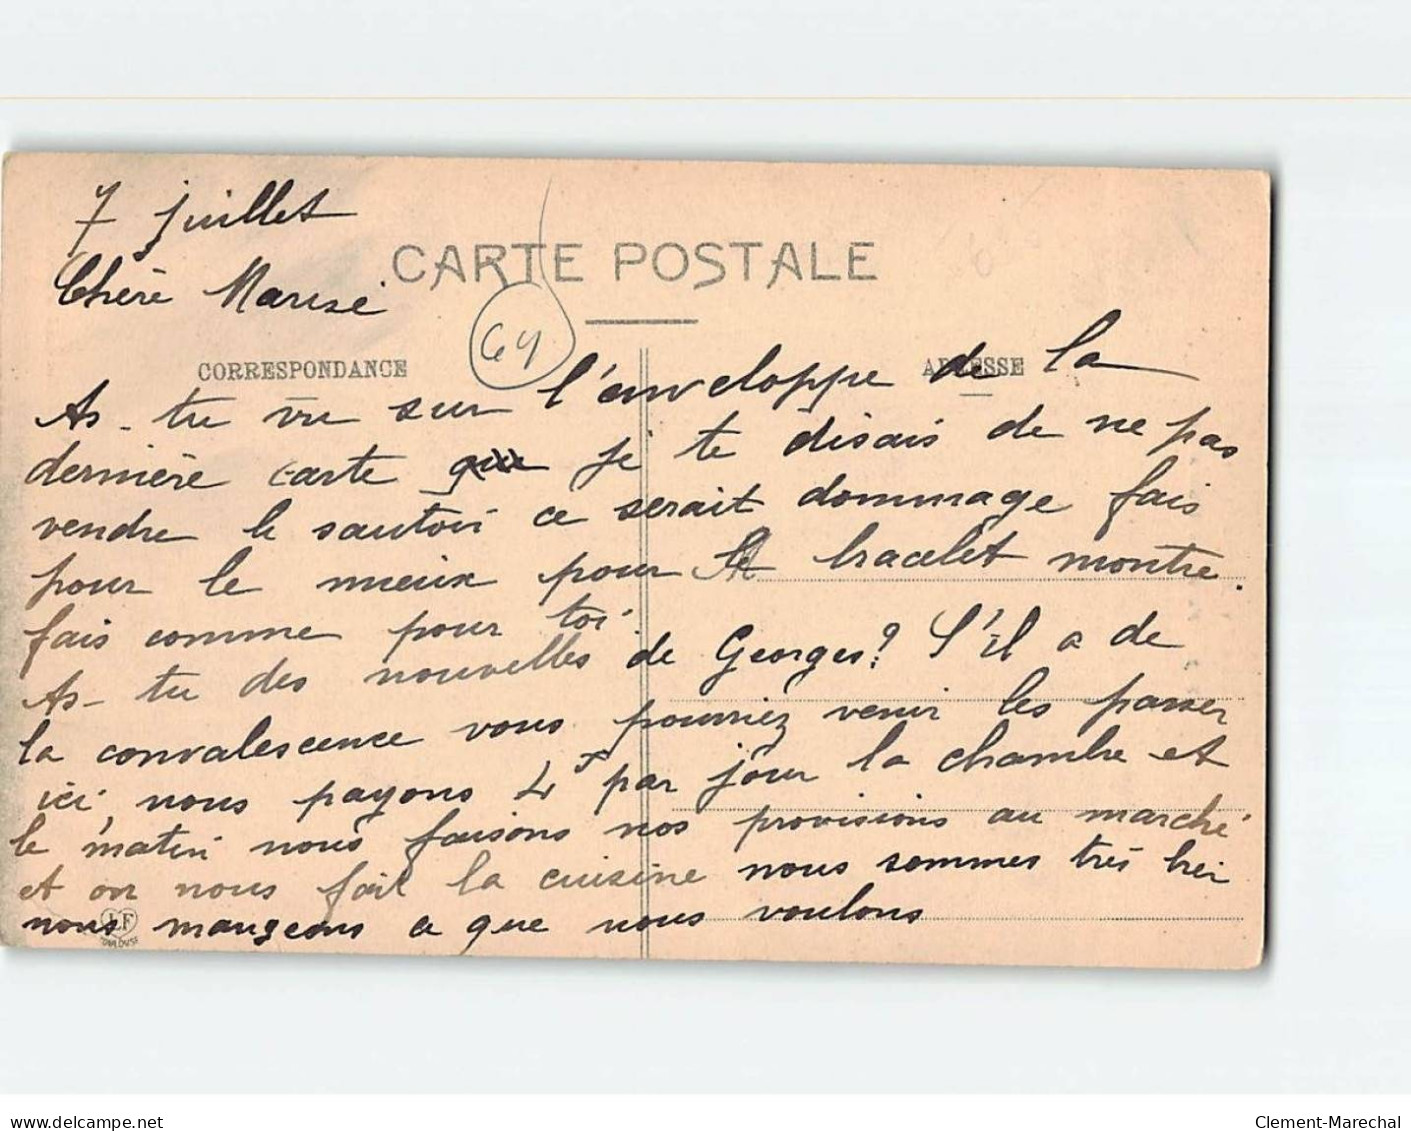 7 juillet
CARTE POSTALE
Chère Marise
64
CORRESPONDANCE
ADRESSE
As-tu vu sur l'enveloppe de la
dernière carte que je te disais de ne pas
vendre le sautoir ce serait dommage fais
pour le mieux pour le bracelet montre.
fais comme pour toi.
As-tu des nouvelles de Georges? S'il a de
la convalescence vous pourriez venir les passer
ici, nous payons 4f par jour la chambre et
le matin nous faisons nos provisions au marché
et on nous fait la cuisine nous sommes très bien
nous mangeons ce que nous voulons
LF
TOULOUSE
delcampe.net
Clement-Marechal